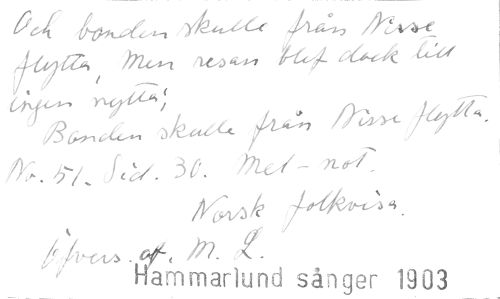 Och bonden skulle från Nisse
flytta, Men resan blef dock till
ingen nytta;
Bonden skulle från Nisse flytta.
No. 51. Sid. 30. Mel-not.
Norsk folkvisa.
Öfvers. af. M. L.
Hammarlund sånger 1903